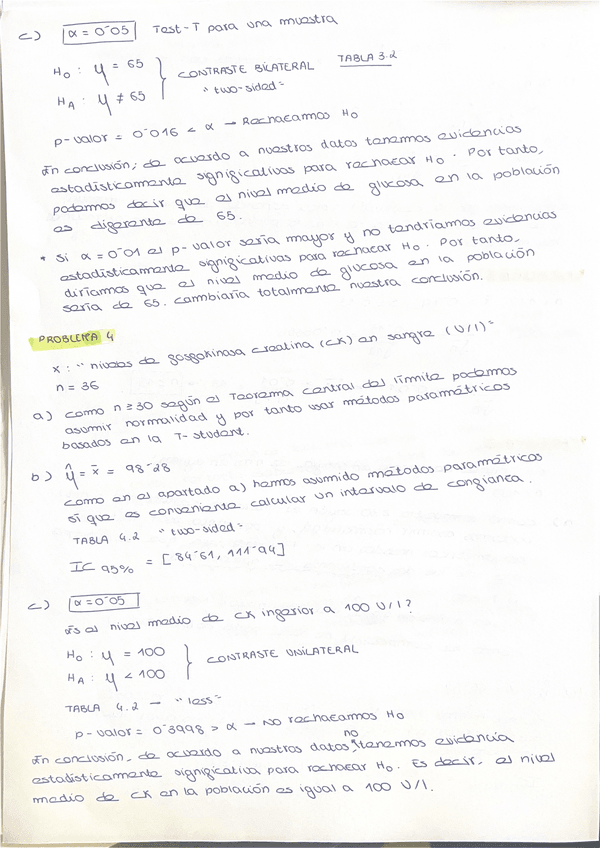 c) α = 0'05 Test-T para una muestra
H0 : μ = 65
HA : μ ≠ 65
CONTRASTE BILATERAL
"two-sided"
TABLA 3.2
p-valor = 0'016 < α → Rechazamos H0
En conclusión, de acuerdo a nuestros datos tenemos evidencias
estadísticamente significativas para rechazar H0. Por tanto,
podemos decir que el nivel medio de glucosa en la población
es diferente de 65.
* Si α = 0'01 el p-valor sería mayor y no tendríamos evidencias
estadísticamente significativas para rechazar H0. Por tanto,
diríamos que el nivel medio de glucosa en la población
sería de 65. cambiaría totalmente nuestra conclusión.
PROBLEMA 4
x : "niveles de fosfokinasa creatina (CK) en sangre (U/l)"
n = 36
a) como n ≥ 30 según el Teorema central del límite podemos
asumir normalidad y por tanto usar métodos paramétricos
basados en la T-student.
b) μ̂ = x̄ = 98'28
como en el apartado a) hemos asumido métodos paramétricos
sí que es conveniente calcular un intervalo de confianza.
TABLA 4.2 "two-sided"
IC 95% = [84'61, 111'94]
c) α = 0'05
Es el nivel medio de CK inferior a 100 U/l?
H0 : μ = 100
HA : μ < 100
CONTRASTE UNILATERAL
TABLA 4.2 → "less"
p-valor = 0'3998 > α → No rechazamos H0
En conclusión, de acuerdo a nuestros datos, no tenemos evidencia
estadísticamente significativa para rechazar H0. Es decir, el nivel
medio de CK en la población es igual a 100 U/l.